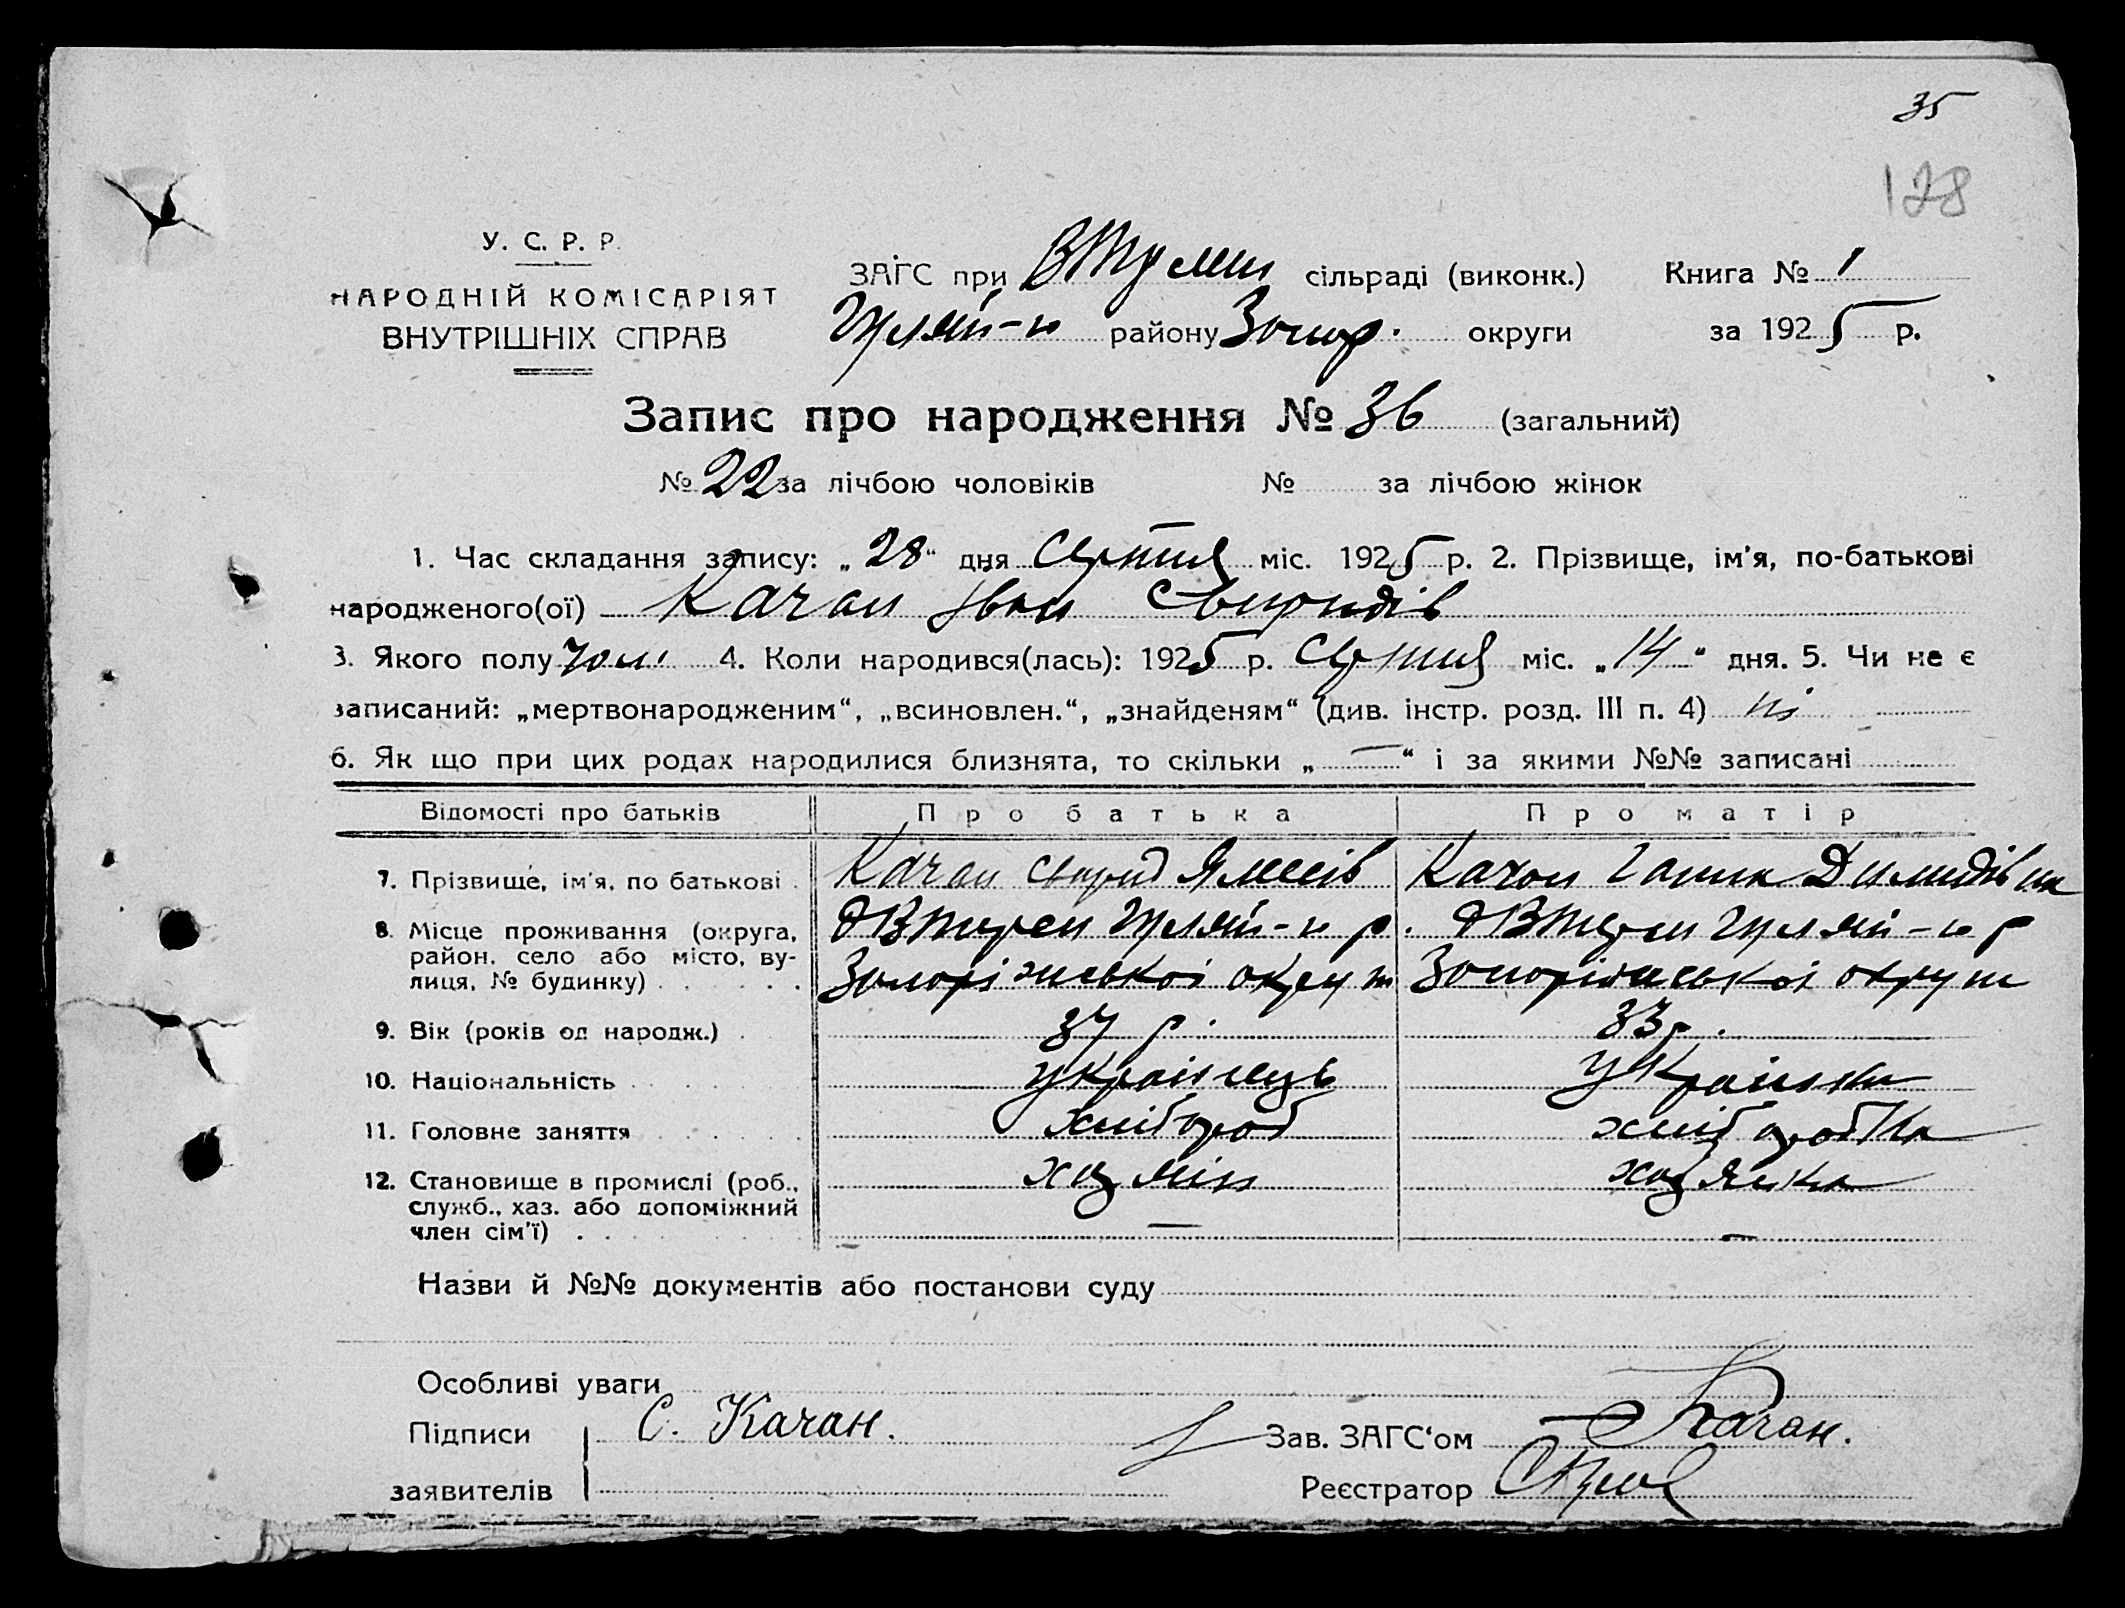 35
128
У. С. Р. Р.
НАРОДНІЙ КОМІСАРІЯТ
ВНУТРІШНІХ СПРАВ
ЗАГС при сільраді (виконк.) Книга № 1
району Запор. округи за 1925 р.
Запис про народження № 36 (загальний)
№ 22 за лічбою чоловіків № за лічбою жінок
1. Час складання запису: „28“ дня серпня міс. 1925 р. 2. Прізвище, ім'я, по-батькові
народженого(ої) Качан Іван Свиридів
3. Якого полу чол. 4. Коли народився(лась): 1925 р. серпня міс. „14“ дня. 5. Чи не є
записаний: „мертвонародженим“, „всиновлен.“, „знайденям“ (див. інстр. розд. III п. 4) ні
6. Як що при цих родах народилися близнята, то скільки „—“ і за якими №№ записані
Відомості про батьків Про батька Про матір
7. Прізвище, ім'я, по батькові . Качан Свирид Качан Ганна Димидівна
8. Місце проживання (округа,
район, село або місто, ву-
лиця, № будинку) . . . . . . Запоріжської округи Запоріжської округи
9. Вік (років од народж.) . 37 р. 33 р.
10. Національність . . . . українець українка
11. Головне заняття . . . . хлібороб хліборобка
12. Становище в промислі (роб., хазяін хазяйка
служб., хаз. або допоміжний
член сім'ї) . . . . . — —
Назви й №№ документів або постанови суду
Особливі уваги
Підписи С. Качан. Зав. ЗАГС'ом Качан.
заявителів Реєстратор